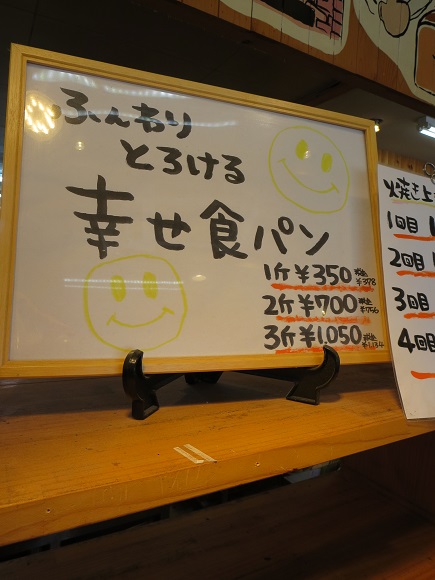 ふんわり
とろける
幸せ食パン
1斤 ¥350 税込 ¥378
2斤 ¥700 税込 ¥756
3斤 ¥1,050 税込 ¥1,134
焼き上
1回目 1
2回目 1
3回目
4回目